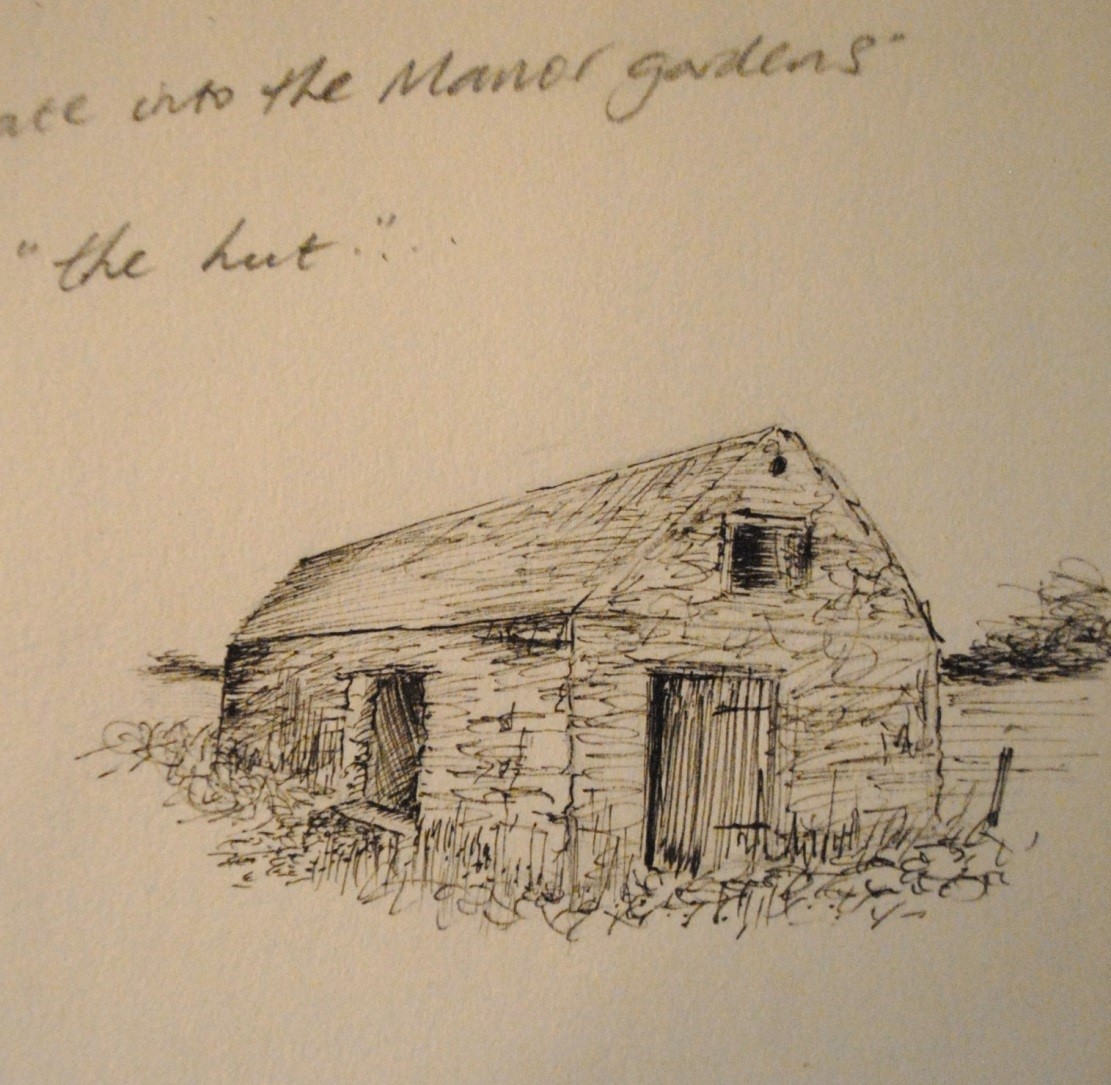 into the Manor gardens"
"the hut."..